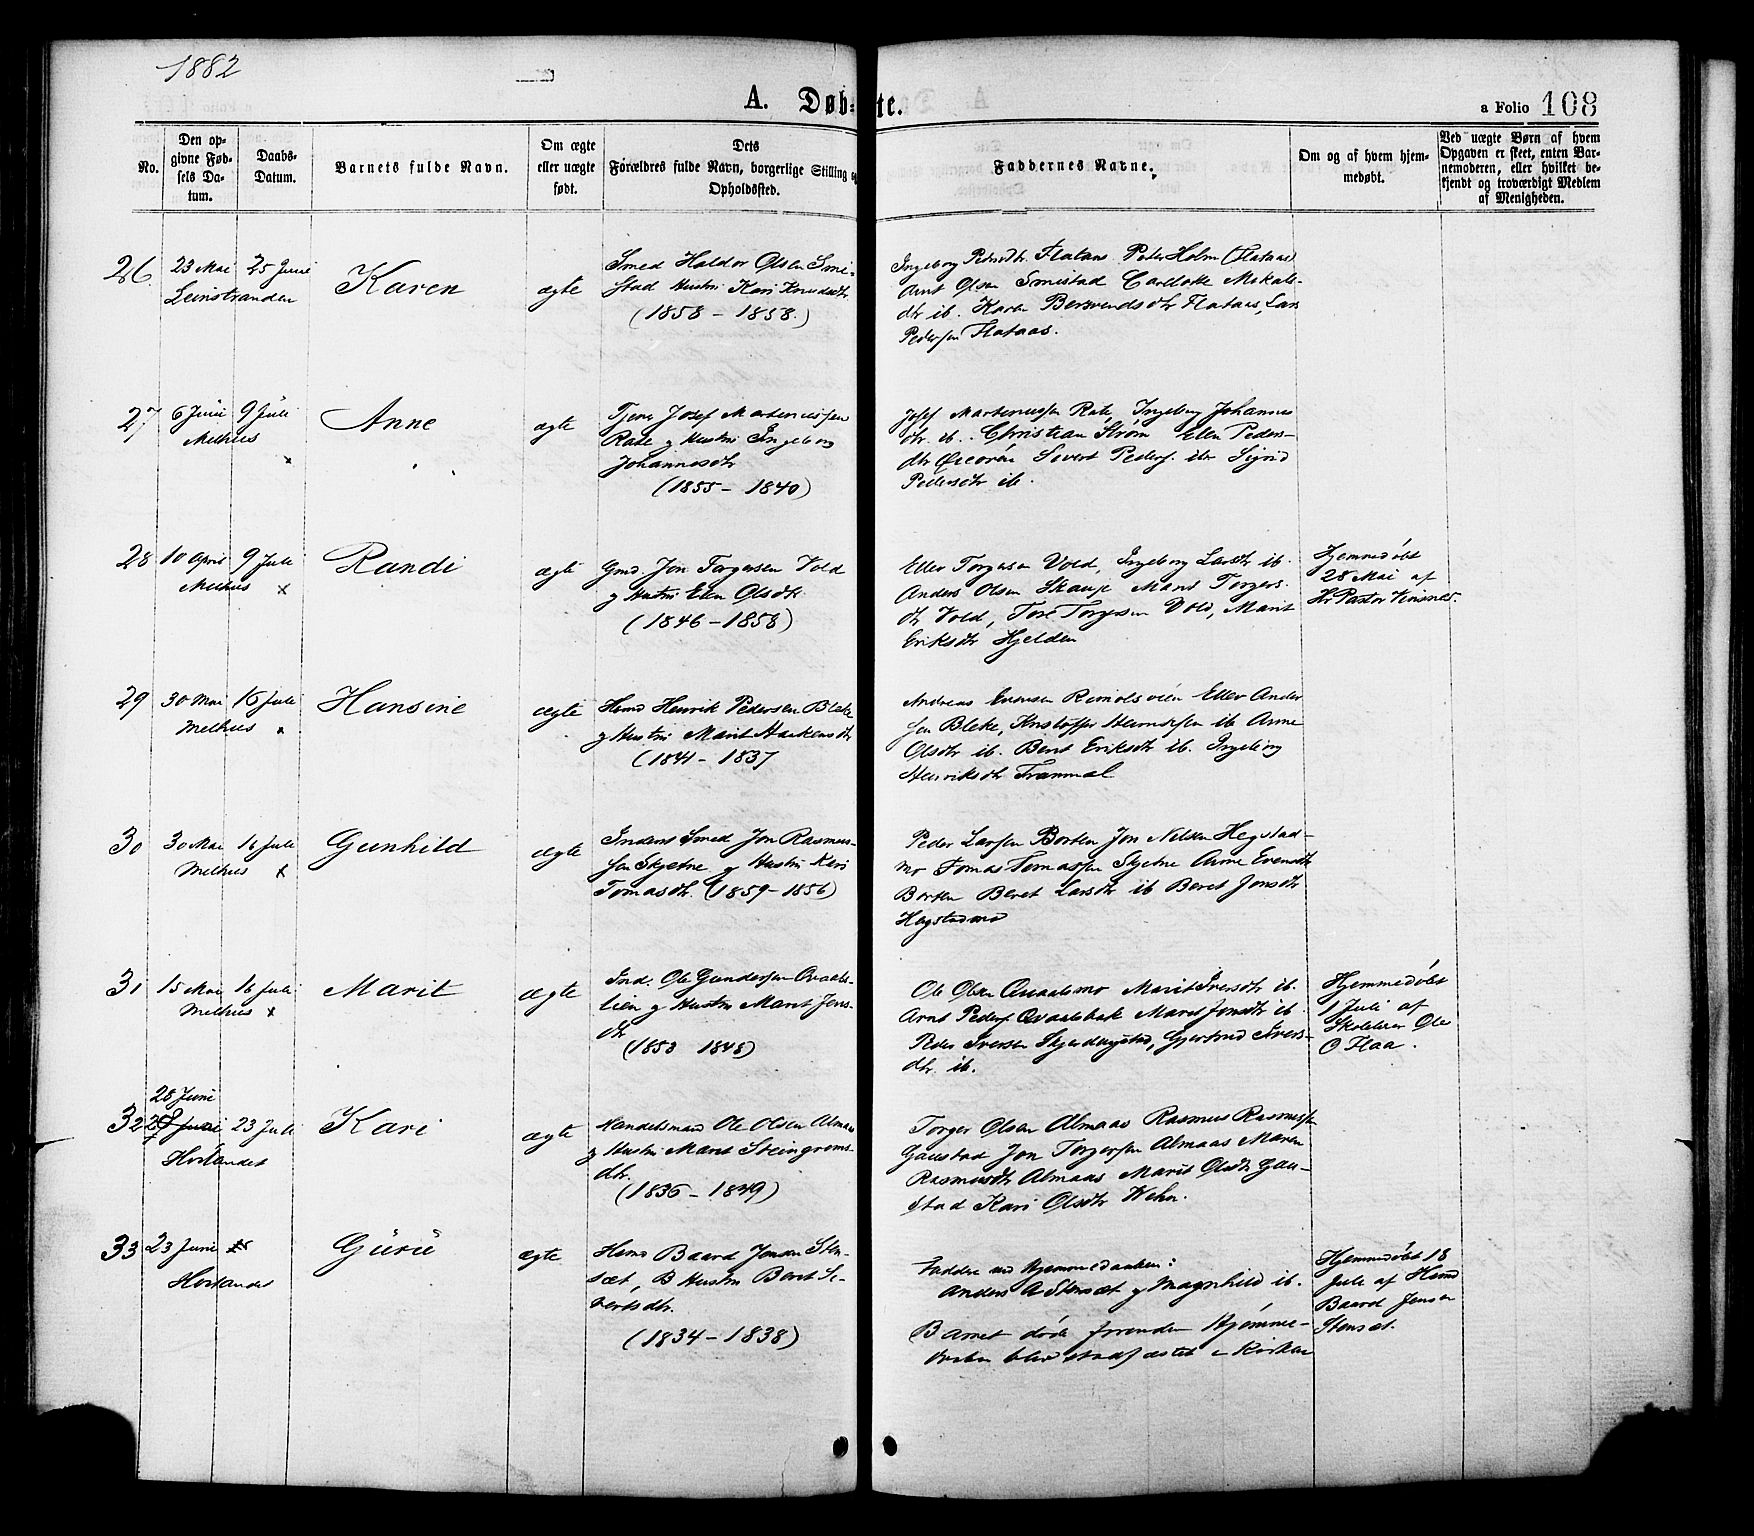 1882
A. Døbte.
a Folio 108
No.
Den op-
givne Fød-
sels Da-
tum.
Daabs-
Datum.
Barnets fulde Navn.
Om ægte
eller uægte
født.
Dets
Forældres fulde Navn, borgerlige Stilling og
Opholdssted.
Faddernes Navne.
Om og af hvem hjem-
medøbt.
Ved uægte Børn af hvem
Opgaven er skeet, enten Bar-
nemoderen, eller hvilket be-
kjendt og troværdigt Medlem
af Menigheden.
26 23 Mai 25 Juni
Leinstranden
Karen
ægte
Smed Haldor Olsen Smi-
stad Hustru Kari Knudsdtr
(1858 - 1858.)
Ingeborg Flataas Peter Holm (Flataas)
Arnt Olsen Smistad Mikals-
dtr ib. Karen Flataas, Lars
Pedersen Flataas.
27 6 Juni 9 Juli
Melhus
Anne
ægte
Tjener Josef Martenussen
Rate og Hustru Ingeborg
Johannesdtr
(1855 - 1840)
Josef Martenussen Rate, Ingeborg Johannes
dtr. ib. Christian Strøm Ellen Peders-
dtr Sivert Peders. Sigrid
Pedersdtr ib.
28 10 April 9 Juli
Melhus x
Randi
ægte
Gmd. Jon Torgersen Vold
og Hustru Elen Olsdtr
(1846 - 1858)
Eller Torgersen Vold, Ingeborg Larsdtr ib.
Anders Olsen Skauge Marit Torgers
dtr Vold, Tore Torgersen Vold, Marit
Eriksdtr Hjelden
Hjemmedøbt
28 Mai af
Hr Pastor
29 30 Mai 16 Juli
Melhus x
Hansine
ægte
Hmd Henrik Pedersen Bleke
og Hustru Marit Haakensdtr
(1841 - 1837
Andreas Evensen Eller Ander
sen Bleke, Kristoffer ib Anne
Olsdtr ib. Berit Eriksdtr ib. Ingeborg
Henriksdtr Trammal
30 30 Mai 16 Juli
Melhus x
Gunhild
ægte
Inderst Smed Jon Rasmus-
sen Skjetne og Hustru Kari
Tomasdtr. (1859 - 1856)
Peder Larsen Borten Jon Nilsen Hegstad-
mo Tomas Tomassen Skjetne Anne Evensdtr
Borten Beret Larsdtr ib Beret Jonsdtr
Hegstadmo
31 15 Mai 16 Juli
Melhus x
Marit
ægte
Ind. Ole Gundersen Qvaals-
lien og Hustru Marit Jens-
dtr
(1853 1848)
Ole Olsen Qvaalsmo Marit Iversdtr ib.
Arnt Peders. Qvaalsbak Marit Jonsdtr ib.
Peder Iversen Gjertrud Ivers-
dtr. ib.
Hjemmedøbt
1 Juli af
Skolelærer Ole
O Flaa.
28 Juni
32 23 Juli
Hølandet
Kari
ægte
Handelsmand Ole Olsen Almaas
og Hustru Marit Steingrims-
dtr.
(1836 - 1849)
Torger Olsen Almaas Rasmus Rasmussen
Gaustad Jon Torgersen Almaas Maren
Rasmusdtr Almaas Marit Olsdtr Gau-
stad Kari Olsdtr
33 23 Juni
Hølandet
Guru
ægte
Hmd Baard Jensen Sten-
sæt, B Hustru Berit Si-
vertsdtr.
(1834 - 1838)
Faddere ved Hjemmedaaben:
Anders A Stensæt og Magnhild ib.
Barnet døde forinden Hjemme-
daaben blev stadfæstet i Kirken
Hjemmedøbt 18
Juli af Hmd
Baard Jensen
Stensæt.